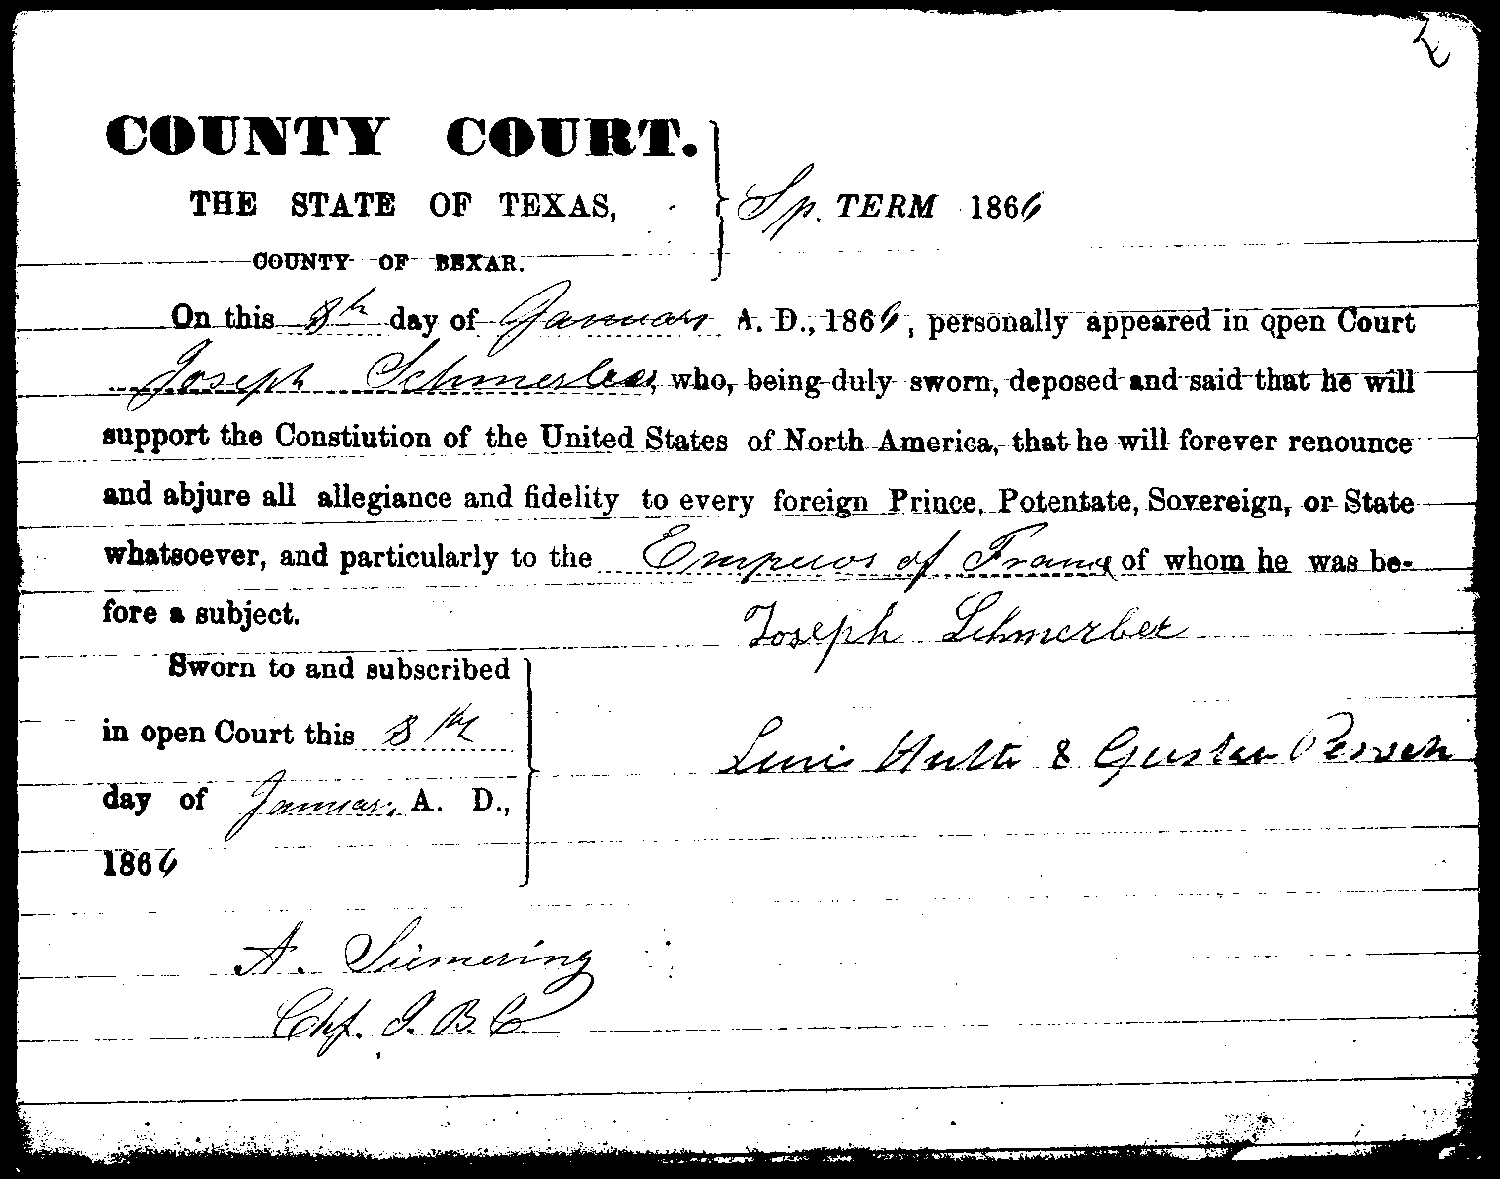 COUNTY COURT.
THE STATE OF TEXAS,
Sp. TERM 1866
COUNTY OF BEXAR.
On this 8th day of Januar A. D., 1866, personally appeared in open Court
Joseph Schmerber, who, being duly sworn, deposed and said that he will
support the Constiution of the United States of North America, that he will forever renounce
and abjure all allegiance and fidelity to every foreign Prince, Potentate, Sovereign, or State
whatsoever, and particularly to the Emperor of France of whom he was be-
fore a subject.
Joseph Schmerber
Sworn to and subscribed
in open Court this 8th
Louis & Gustav
day of Januar, A. D.,
1866
A. Siemering
Chf. J. B. C